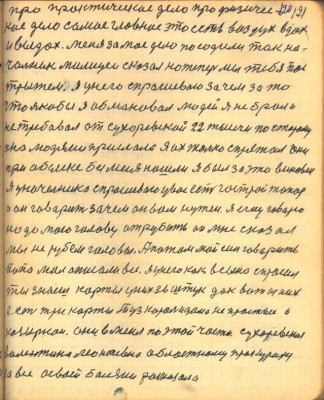 про практичиское дело про физиче- 120/121
кое дело самое главное это есть воздух вдох
и выдох. меня за мое дело посодили так на-
чальник милиции сказал котперь мы тебя пос
трижем. Я у него спрашиваю зачем за то
что якобы я обмановал людей я не брал и
не требавал от сухоревской 22 тысячи по старому
она людями прислала я их только спрятал они
при обыске бы меня нашли я был за это виновен
я у начальника спрашиваю у вас есть гострой топор
а он говарит зачем он вам нужен. я ему говарю
надо мою голову отрубить он мне сказал
мы не рубем головы. А потом мой сын говарить
папа мол отпише все. я у него как всыно спросил
ты знаеш карты у них 36 штук дак вот у них
есть три карты Туз король дама не простые а
козырнои. они в меня по этой части сухоревская
валентина леонтевна областному прокурору
а все освоей балезни росказала